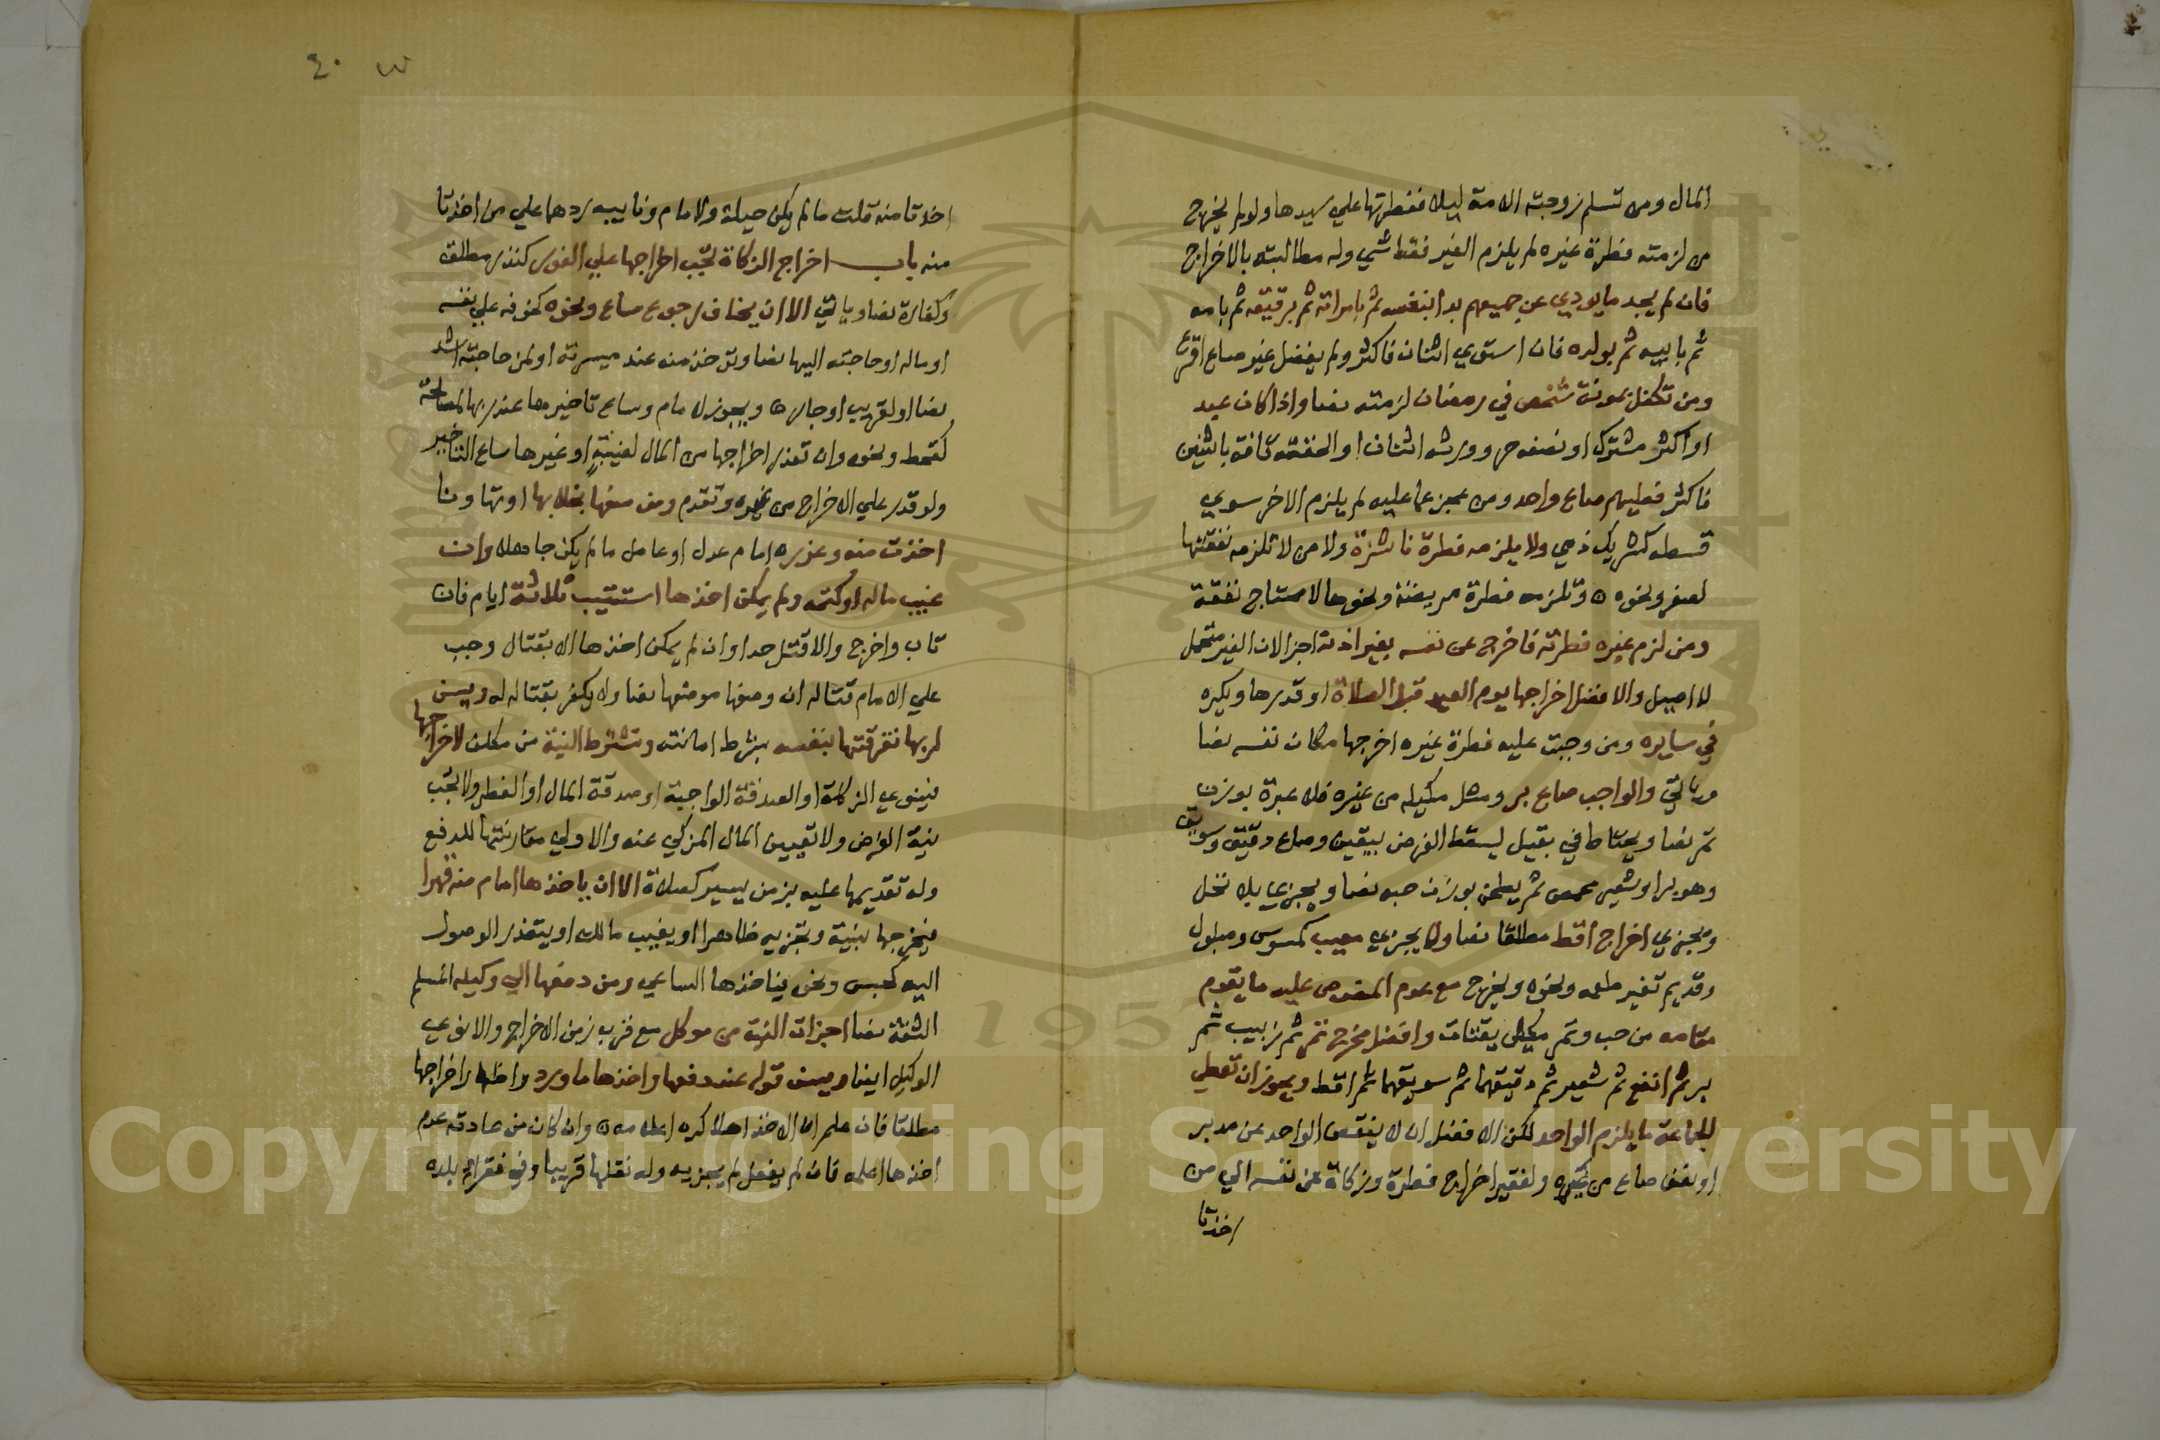 المال ومن تسلم زوجته الامة ليلا ففطرتها علي سيدها ولو لم يخرج
من لزمته فطرة غيره لم يلزم الغير فقط شي وله مطالبته بالاخراج
فان لم يجد ما يودي عن جميعهم بدا بنفسه ثم بامراته ثم برقيقه ثم بامه
ثم بابيه ثم بولده فان استوي اثنان فاكثر ولم يفضل غير صاع اقرع
ومن تكفل بمونة شخص في رمضان لزمته نصا واذا كان عبد
او اكثر مشترك او نصفه حر وورثه اثنان او الحقته قافة باثنين
فاكثر فعليهم صاع واحد ومن عجز عما عليه لم يلزم الاخر سوي
قسطه كشريك ذمي ولا يلزمه فطرة ناشزة ولا من لا تلزمه نفقتها
لصغر ونحوه وتلزمه فطرة مريضة ونحوها لا محتاج نفقة
ومن لزم غيره فطرته فاخرج عن نفسه بغير اذنه اجزا لان الغير متحمل
لا اصيل والافضل اخراجها يوم العيد قبل الصلاة او قدرها ويكره
في سايره ومن وجبت عليه فطرة غيره اخرجها مكان نفسه نصا
وياتي والواجب صاع بر ومثل مكيله من غيره فلا عبرة بوزن
تمر نصا ويحتاط في ثقيل ليسقط الفرض بيقين وصاع دقيق وسويق
وهو بر او شعير محمص ثم يطحن بوزن حبه نصا ويجزي بلا نخل
ويجزي اخراج اقط مطلقا نصا ولا يجزي معيب كمسوس ومبلول
وقديم تغير طعمه ونحوه ويخرج مع عدم المنصوص عليه ما يقوم
مقامه من حب وتمر مكيل يقتات وافضل مخرج تمر ثم زبيب ثم
بر ثم انفع ثم شعير ثم دقيقهما ثم سويقهما ثم اقط ويجوز ان تعطي
الجماعة ما يلزم الواحد لكن الافضل ان لا ينقص الواحد عن مد بر
او نصف صاع من غيره ولفقير اخراج فطرة وزكاة عن نفسه الي من
اخذتا
٤٠
اخذتا منه قلت ما لم يكن حيلة والامام ونايبه ردهما علي من اخذتا
منه باب اخراج الزكاة تجب اخراجها علي الفور كنذر مطلق
وكفارة نصا وياتي الا ان يخاف رجوع ساع ونحوه كخوفه علي نفسه
او ماله او حاجته اليها نصا وتوخذ منه عند ميسرته او لمن حاجته اشد
نصا او لقريب او جار ويجوز لامام وساع تاخيرها عند ربها لمصلحة
كقحط ونحوه وان تعذر اخراجها من المال لغيبة او غيرها ساع التاخير
ولو قدر علي الاخراج من غيره وتقدم ومن منعها بخلا بها او تهاونا
اخذت منه وعزره امام عدل او عامل ما لم يكن جاهلا وان
غيب ماله او كتمه ولم يمكن اخذها استتيب ثلاثة ايام فان
تاب واخرج والا قتل حدا وان لم يمكن اخذها الا بقتال وجب
علي الامام قتاله ان وضعها موضعها نصا ولا يكفر بقتاله له ويسن
لربها تفرقتها بنفسه بشرط امانته وتشترط النية من مكلف لاخراجها
فينوي الزكاة او الصدقة الواجبة او صدقة المال او الفطر ولا تجب
نية الفرض ولا تعيين المال المزكي عنه والاولي مقارنتها للدفع
وله تقديمها عليه بزمن يسير كصلاة الا ان ياخذها امام منه قهرا
فيخرجها بنية وتجزيه ظاهرا او يغيب مالك او يتعذر الوصول
اليه كحبس ونحوه فياخذها الساعي ومن دفعها الي وكيله المسلم
الثقة نصا اجزات النية من موكل مع قرب زمن الاخراج والا نوي
الوكيل ايضا ويسن قوله عند دفعها واخذها ما ورد واظهار اخراجها
مطلقا فان علم ان الاخذ اهلا كره اعلامه وان كان من عادته عدم
اخذها اعلمه فان لم يفعل لم يجزيه وله نقلها قريبا وفي فقراء بلده
Copyright © King Saud University
195